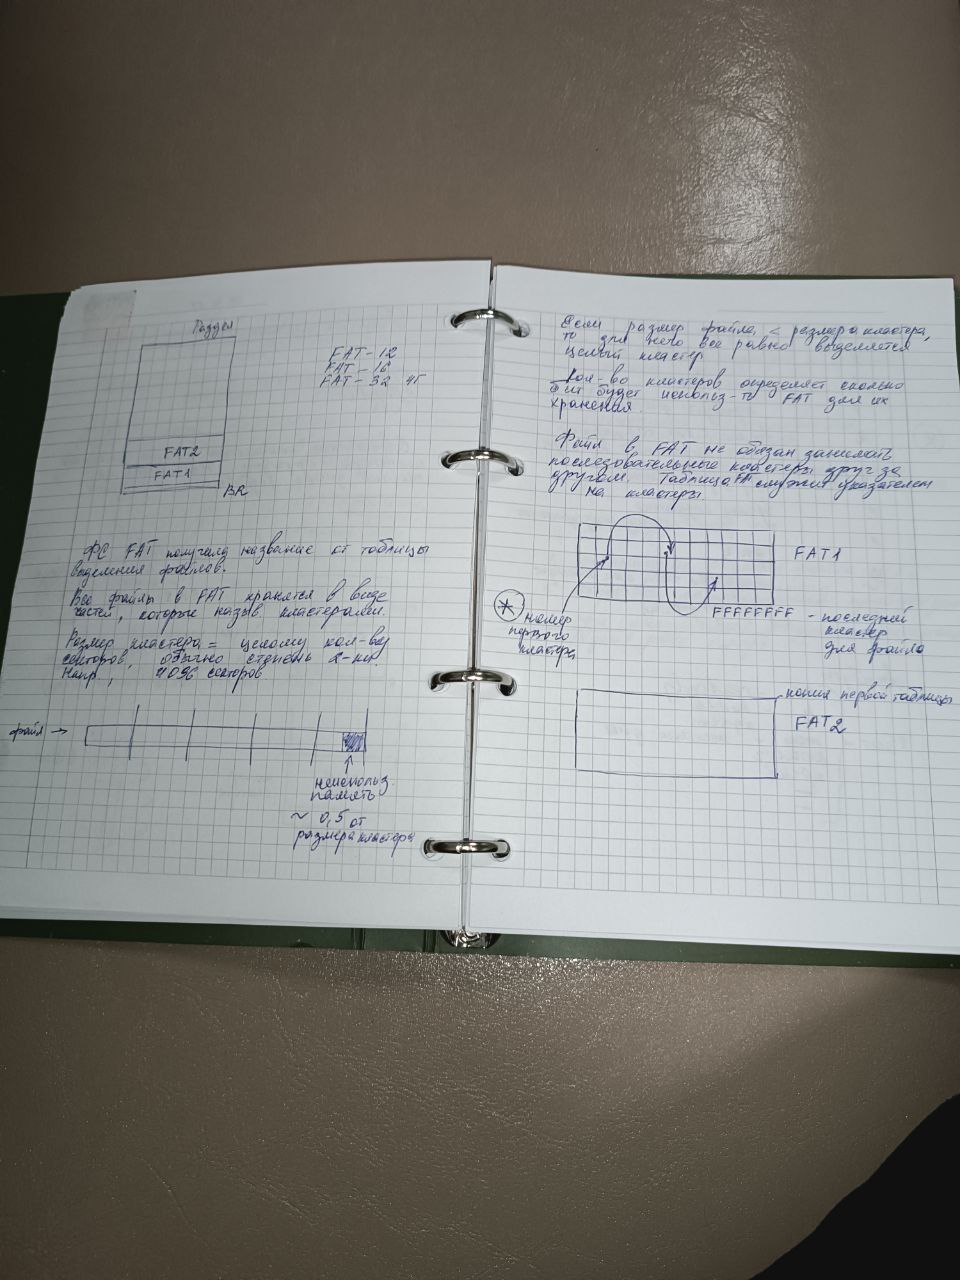 Раздел
FAT-12
FAT-16
FAT-32 4Г
FAT2
FAT1
BR
ФС FAT получила название от таблицы
выделения файлов.
Все файлы в FAT хранятся в виде
частей, которые назыв. кластерами.
Размер кластера = целому кол-ву
секторов, обычно степень 2-ки.
Напр., 4096 секторов
файл →
неиспольз.
память
~ 0,5 от
размера кластера
Если размер файла < размера кластера,
то для него все равно выделяется
целый кластер
Кол-во кластеров определяет сколько
бит будет использ-ть FAT для их
хранения
Файл в FAT не обязан занимать
последовательные кластеры друг за
другом. Таблица FAT служит указателем
на кластеры
FAT1
* номер
первого
кластера
FFFFFFFF - последний
кластер
для файла
копия первой таблицы
FAT2